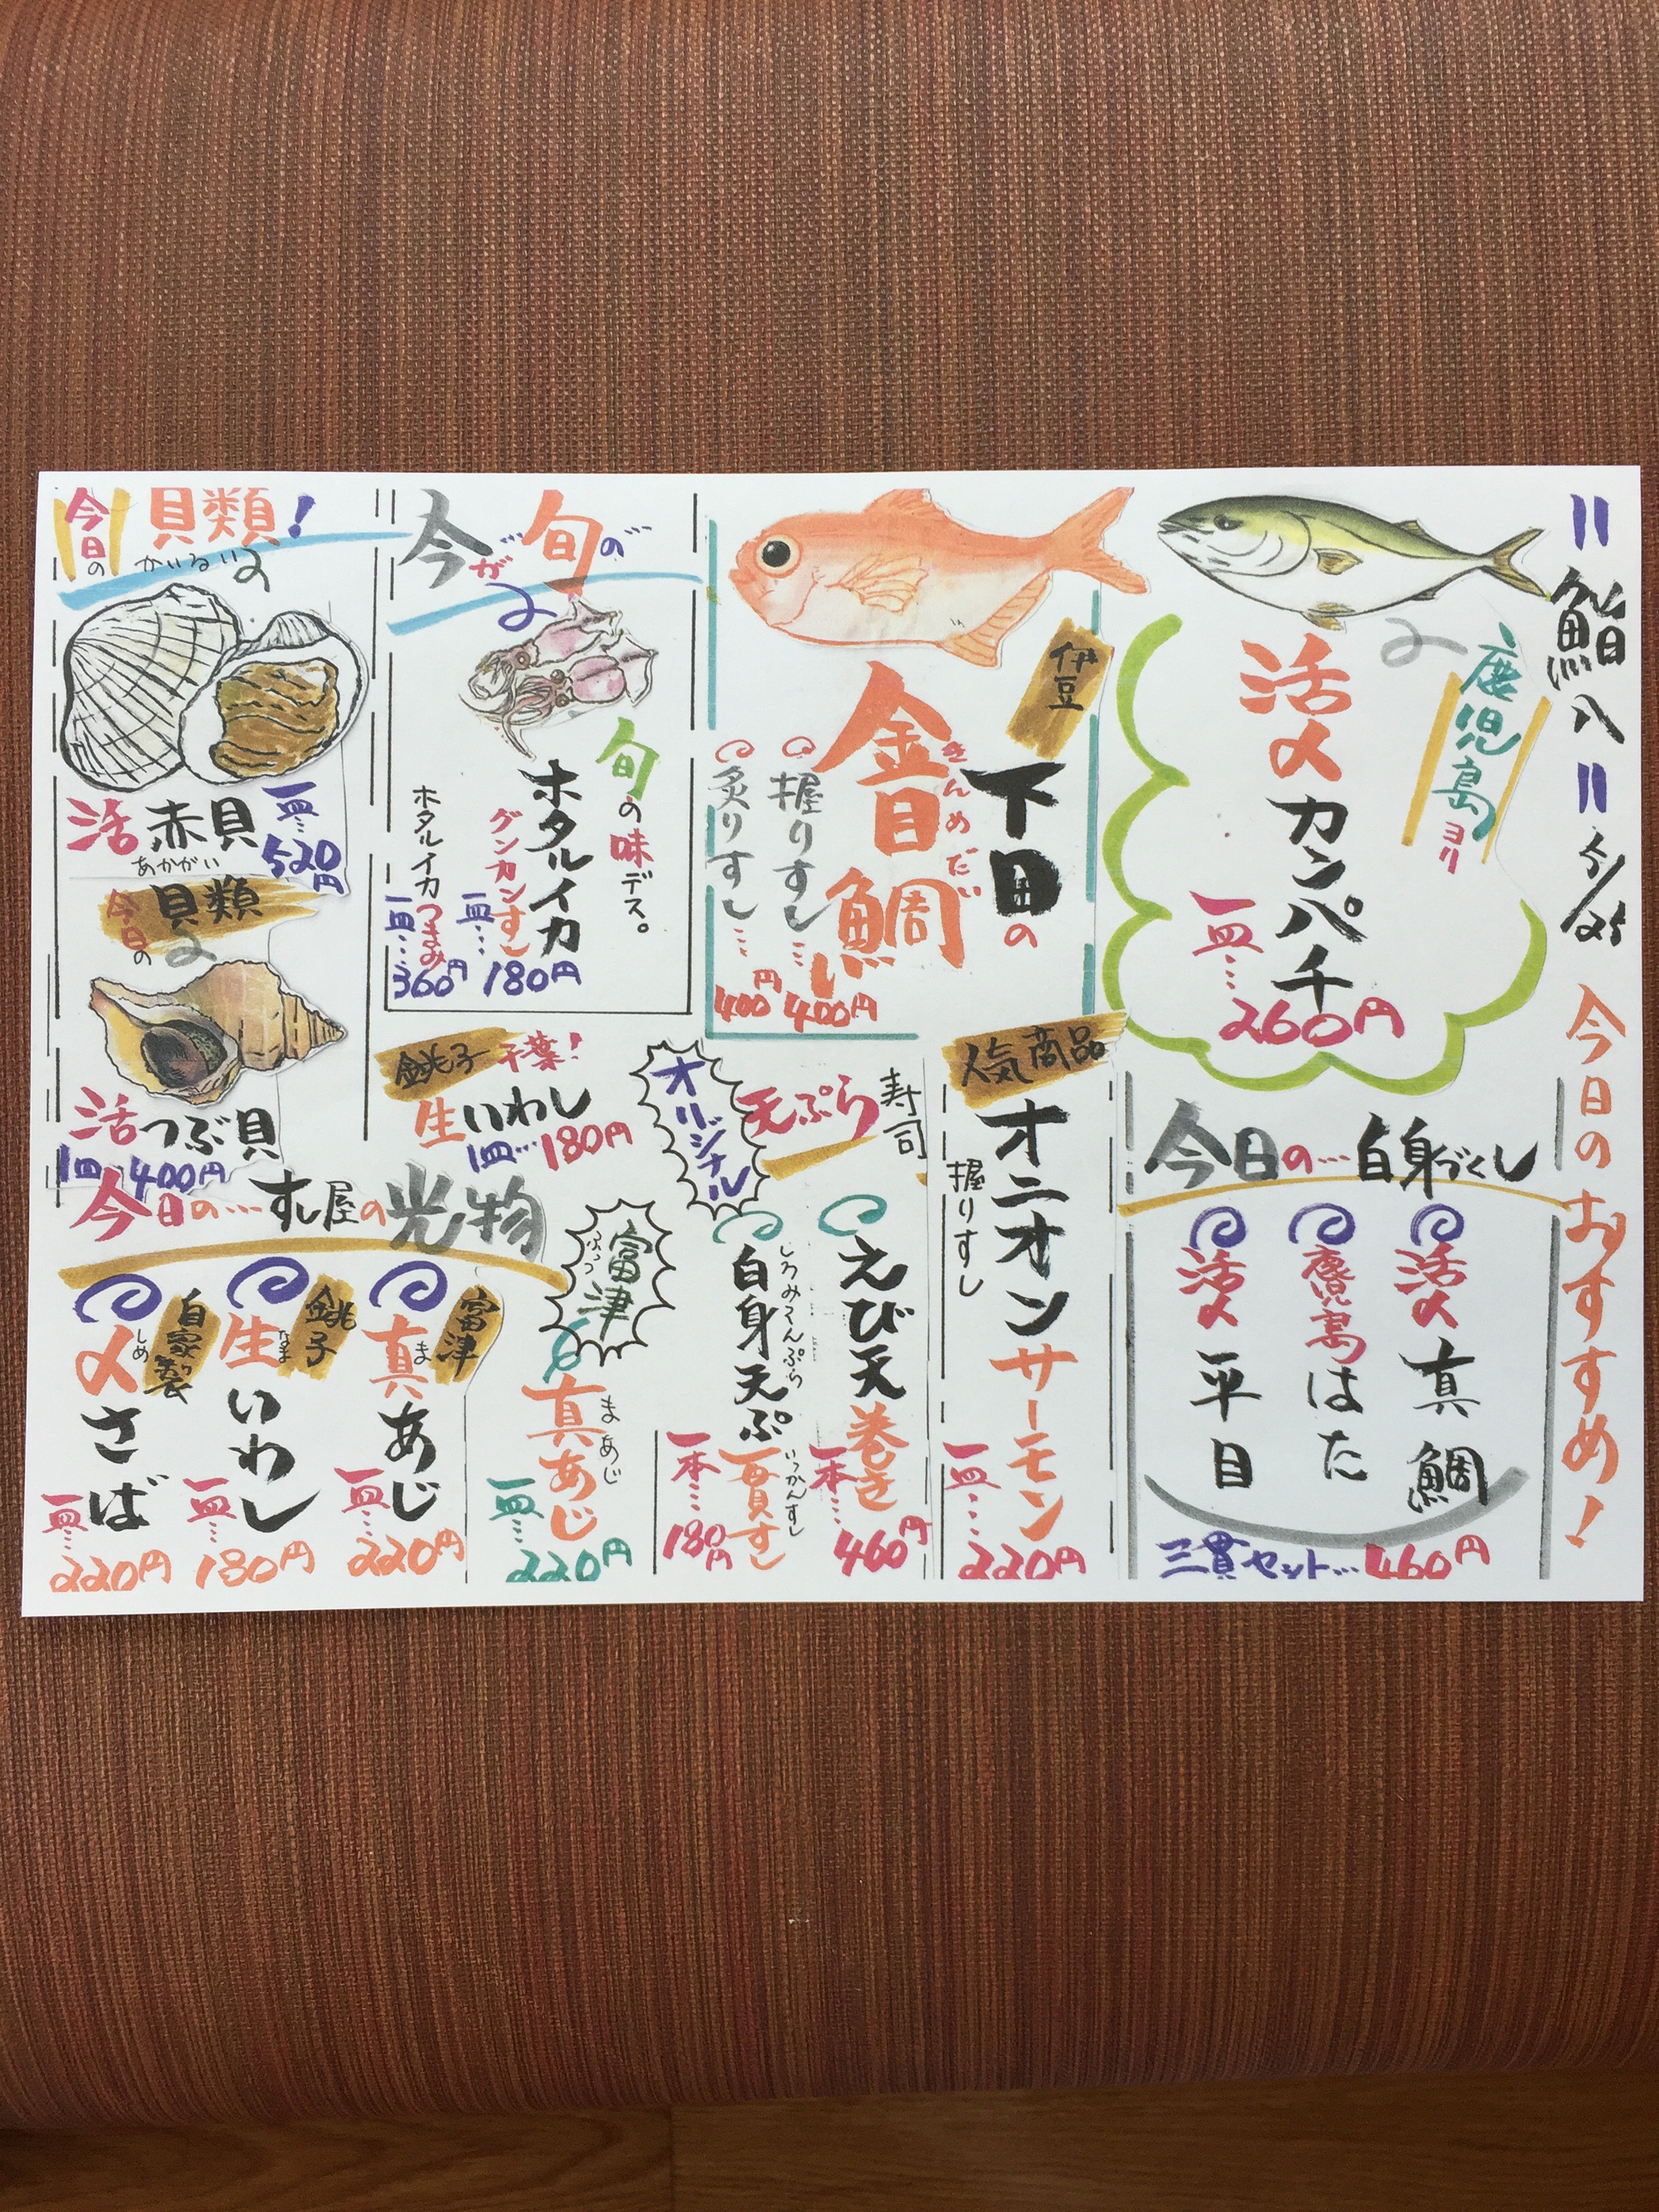 鮨八
5/25
今日のおすすめ!
鹿児島ヨリ
活〆カンパチ
一皿…
260円
今日の…白身づくし
活〆真鯛
鹿児島はた
活〆平目
三貫セット…460円
伊豆
下田の
金目鯛
きんめだい
握りすし…400円
炙りすし…400円
人気商品
オニオンサーモン
握りすし
一皿…
220円
オリジナル
天ぷら寿司
えび天巻き
一本…
460円
白身天ぷら
しろみてんぷら
一貫すし
いっかんすし
一本…
180円
今が旬の…
旬の味デス。
ホタルイカ
グンカンすし
一皿…180円
ホタルイカつまみ
一皿…360円
銚子
千葉!
生いわし
1皿…180円
富津
ふっつ
真あじ
まあじ
一皿…
220円
今日の
貝類!
かいるい
活赤貝
あかがい
一皿…
520円
今日の
貝類
活つぶ貝
1皿…400円
今日の…すし屋の光物
富津
真あじ
ま
一皿…
220円
銚子
生いわし
なま
一皿…
180円
自家製
〆さば
しめ
一皿…
220円